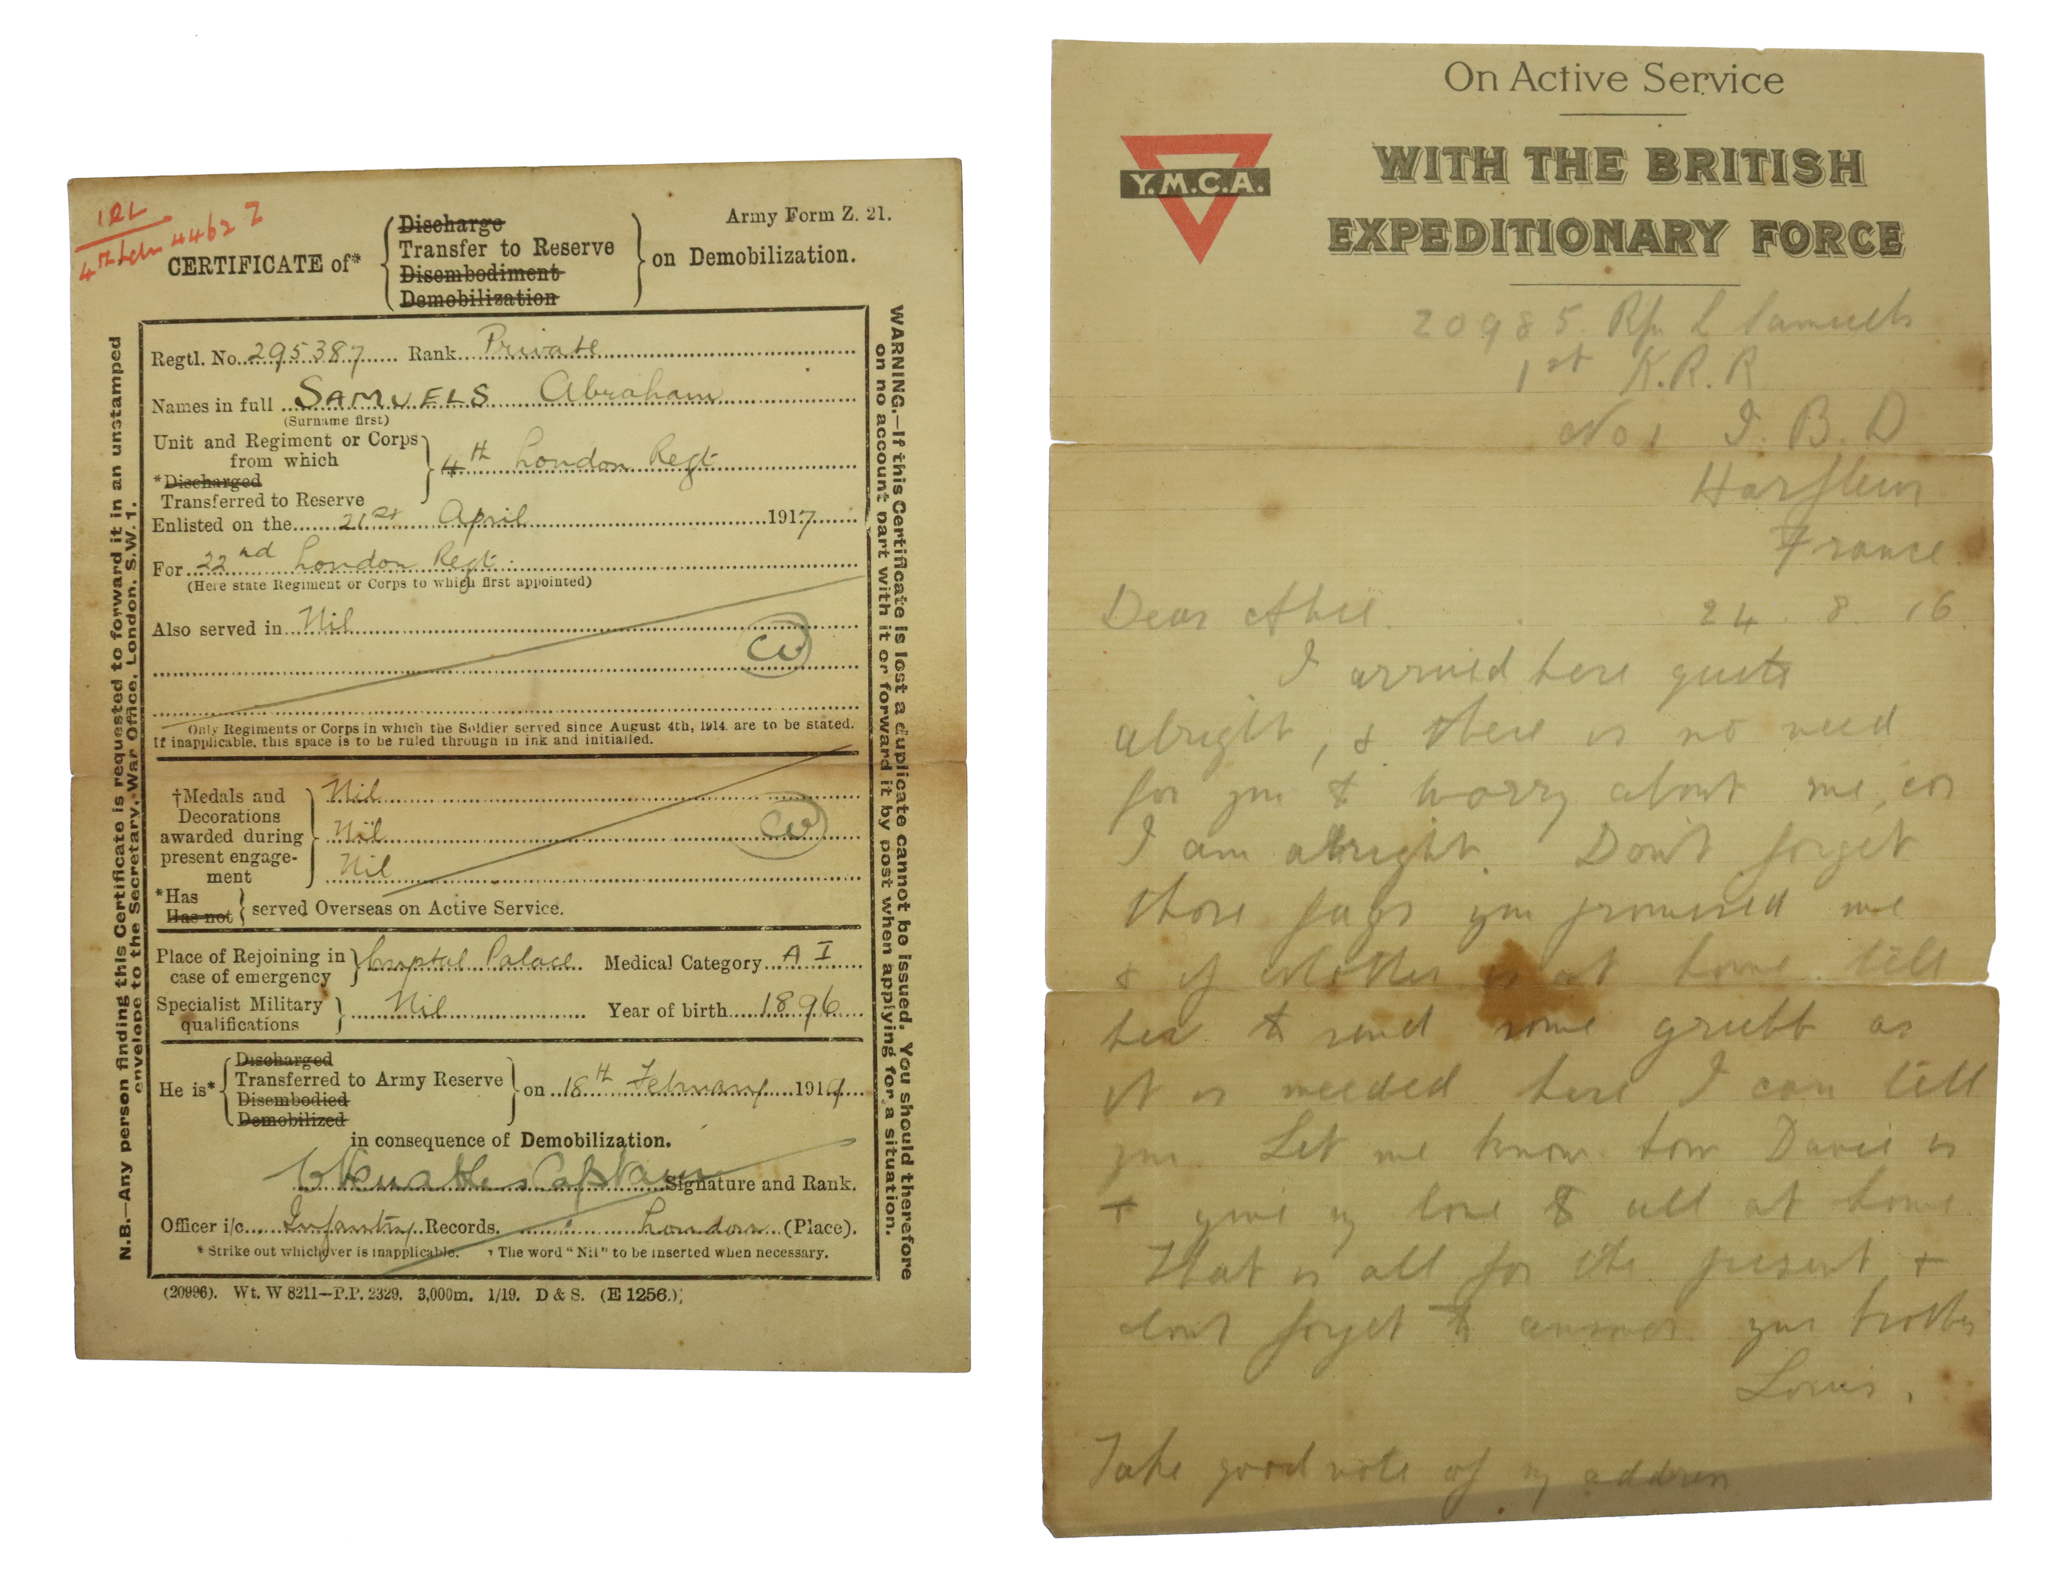 4th Ldn 4462 Z
Army Form Z. 21.
CERTIFICATE of*
Discharge
Transfer to Reserve
Disembodiment
Demobilization
on Demobilization.
Regtl. No. 295387 Rank Private
Names in full SAMUELS Abraham
(Surname first)
Unit and Regiment or Corps
from which
*Discharged
Transferred to Reserve
4th London Regt
Enlisted on the 21st April 1917
For 22nd London Regt.
(Here state Regiment or Corps to which first appointed)
Also served in Nil
Only Regiments or Corps in which the Soldier served since August 4th, 1914, are to be stated.
If inapplicable, this space is to be ruled through in ink and initialled.
†Medals and
Decorations
awarded during
present engage-
ment
Nil
Nil
Nil
*Has
Has not
served Overseas on Active Service.
Place of Rejoining in
case of emergency
Crystal Palace Medical Category A I
Specialist Military
qualifications
Nil Year of birth 1896
He is*
Discharged
Transferred to Army Reserve
Disembodied
Demobilized
on 18th February 1919
in consequence of Demobilization.
Captain Signature and Rank.
Officer i/c Infantry Records. London (Place).
* Strike out whichever is inapplicable. † The word "Nil" to be inserted when necessary.
(20996). Wt. W 8211—P.P. 2329. 3,000m. 1/19. D & S. (E 1256.)
N.B.—Any person finding this Certificate is requested to forward it in an unstamped
envelope to the Secretary, War Office, London, S.W. 1.
WARNING.—If this Certificate is lost a duplicate cannot be issued. You should therefore
on no account part with it or forward it by post when applying for a situation.
On Active Service
Y.M.C.A.
WITH THE BRITISH
EXPEDITIONARY FORCE
20985 Rfn L Samuels
1st K.R.R
No 1 I. B. D
Harfleur
France
Dear Abie. 24. 8. 16.
I arrived here quite
alright, & there is no need
for you to worry about me, cos
I am alright. Don't forget
those fags you promised me
& if Mother is at home tell
her to send some grubb as
it is needed here I can tell
you. Let me know how Davie is
+ give my love to all at home
That is all for the present, +
dont forget to answer your brother
Louis.
Take good note of my address